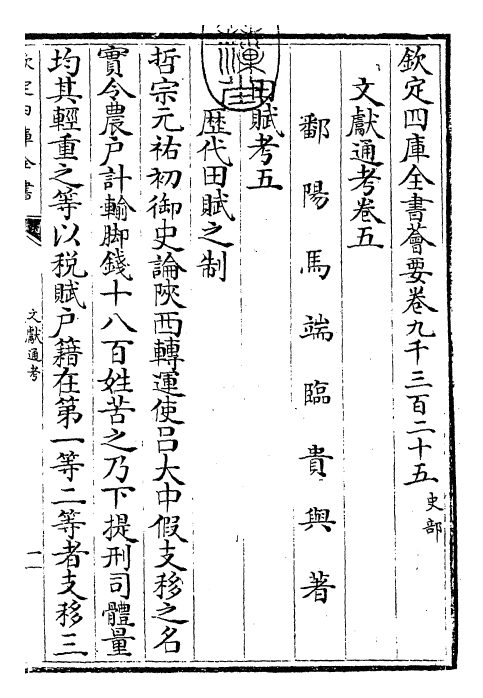 欽定四庫全書薈要卷九千三百二十五 史部
文獻通考卷五
鄱陽馬端臨貴與著
田賦考五
歷代田賦之制
哲宗元祐初御史論陝西轉運使吕大中假支移之名
實令農户計輸脚錢十八百姓苦之乃下提刑司體量
均其輕重之等以税賦户籍在第一等二等者支移三
欽定四庫全書
文獻通考
一